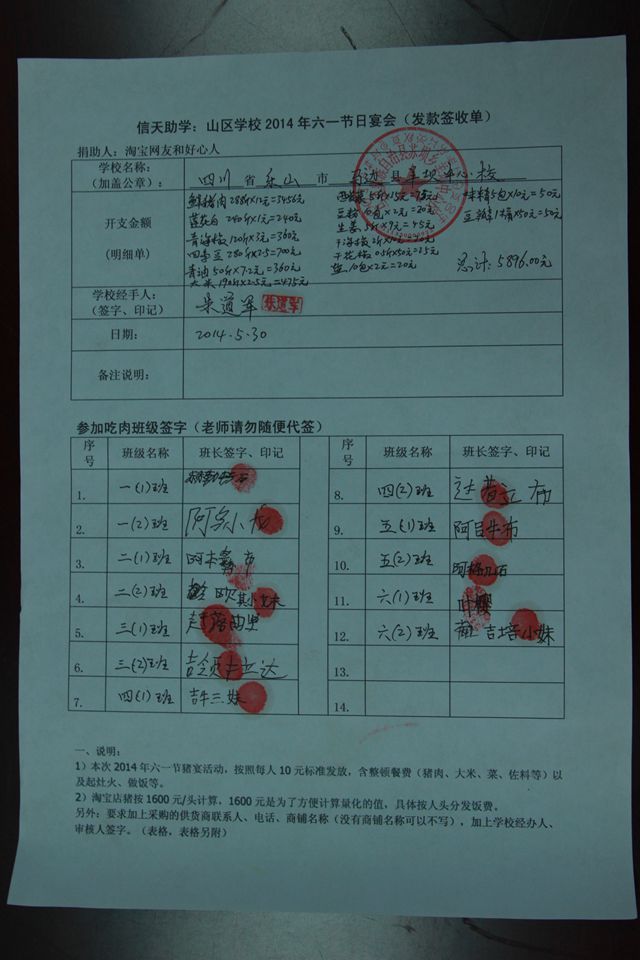 信天助学：山区学校 2014 年六一节日宴会（发款签收单）
捐助人：淘宝网友和好心人
学校名称：
（加盖公章）：
四川 省 乐山 市 马边 县 中心 校
开支金额
（明细单）
鲜猪肉 288斤×12元=3456元
莲花白 240斤×1元=240元
青海椒 120斤×3元=360元
四季豆 280斤×2.5=700元
青油 50斤×7.2元=360元
大米 190斤×2.5元=475元
豆粉 10包×2元=20元
生姜 5斤×9元=45元
盐 10包×2元=20元
味精5包×10元=50元
豆瓣 1桶×50元=50元
总计：5896.00元
学校经手人：
（签字、印记）
朱道军
日期：
2014.5.30
备注说明：
参加吃肉班级签字（老师请勿随便代签）
序号 班级名称 班长签字、印记
1. 一(1)班
2. 一(2)班 阿余小龙
3. 二(1)班
4. 二(2)班
5. 三(1)班
6. 三(2)班
7. 四(1)班 吉牛三妹
序号 班级名称 班长签字、印记
8. 四(2)班
9. 五(1)班 阿吕牛布
10. 五(2)班
11. 六(1)班 叶樱
12. 六(2)班 吉培小妹
13.
14.
一、说明：
1）本次 2014 年六一节猪宴活动，按照每人 10 元标准发放，含整顿餐费（猪肉、大米、菜、佐料等）以
及起灶火、做饭等。
2）淘宝店猪按 1600 元/头计算，1600 元是为了方便计算量化的值，具体按人头分发饭费。
另外：要求加上采购的供货商联系人、电话、商铺名称（没有商铺名称可以不写），加上学校经办人、
审核人签字。（表格，表格另附）